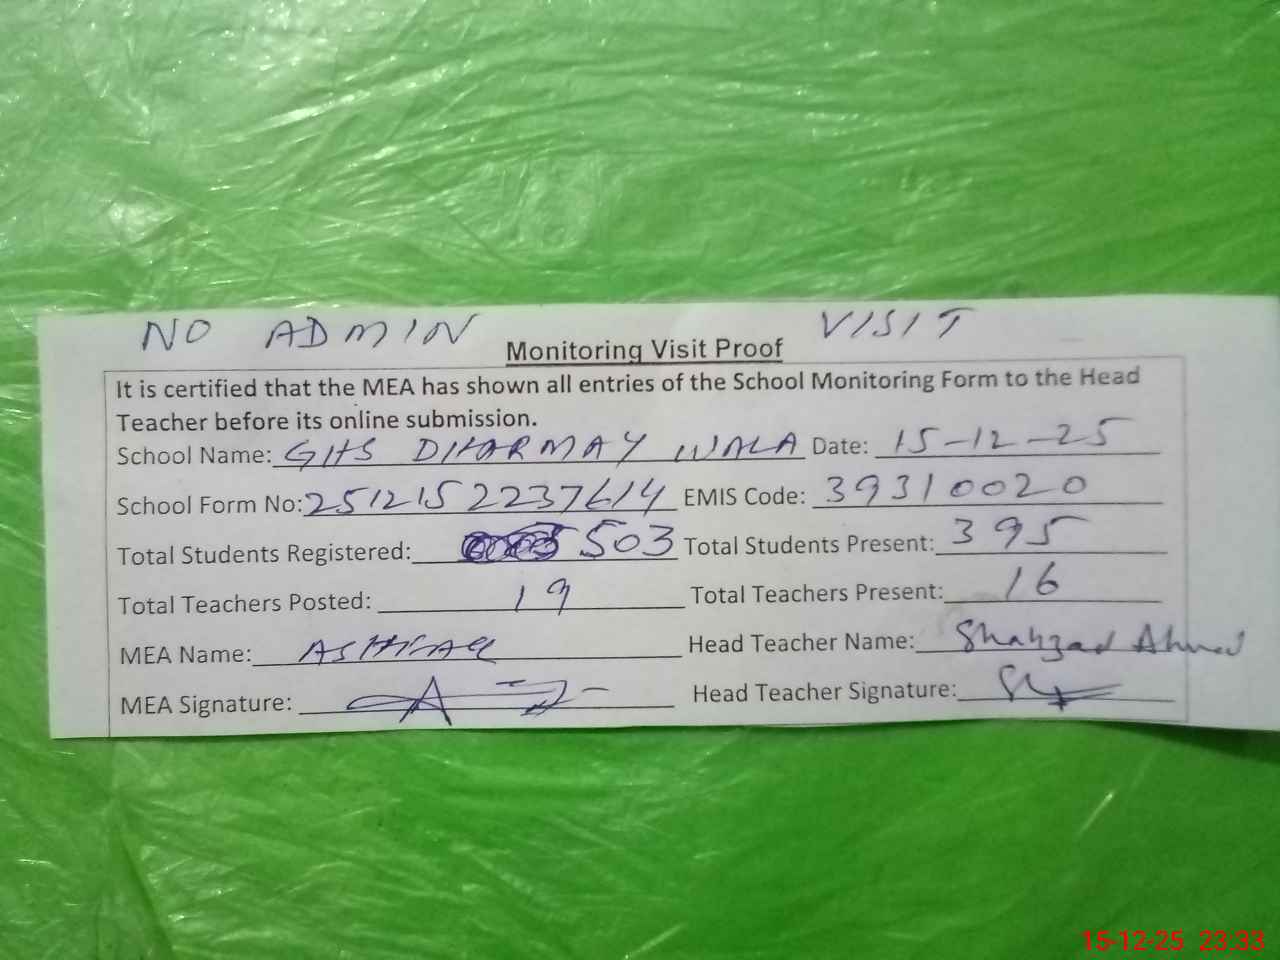 NO ADMIN VISIT
Monitoring Visit Proof
It is certified that the MEA has shown all entries of the School Monitoring Form to the Head
Teacher before its online submission.
School Name: GHS DHARMAY WALA Date: 15-12-25
School Form No: 2512152237614 EMIS Code: 39310020
Total Students Registered: 503 Total Students Present: 395
Total Teachers Posted: 19 Total Teachers Present: 16
MEA Name: ASHFAQ Head Teacher Name: Shahzad Ahmed
MEA Signature: Head Teacher Signature:
15-12-25 23:33